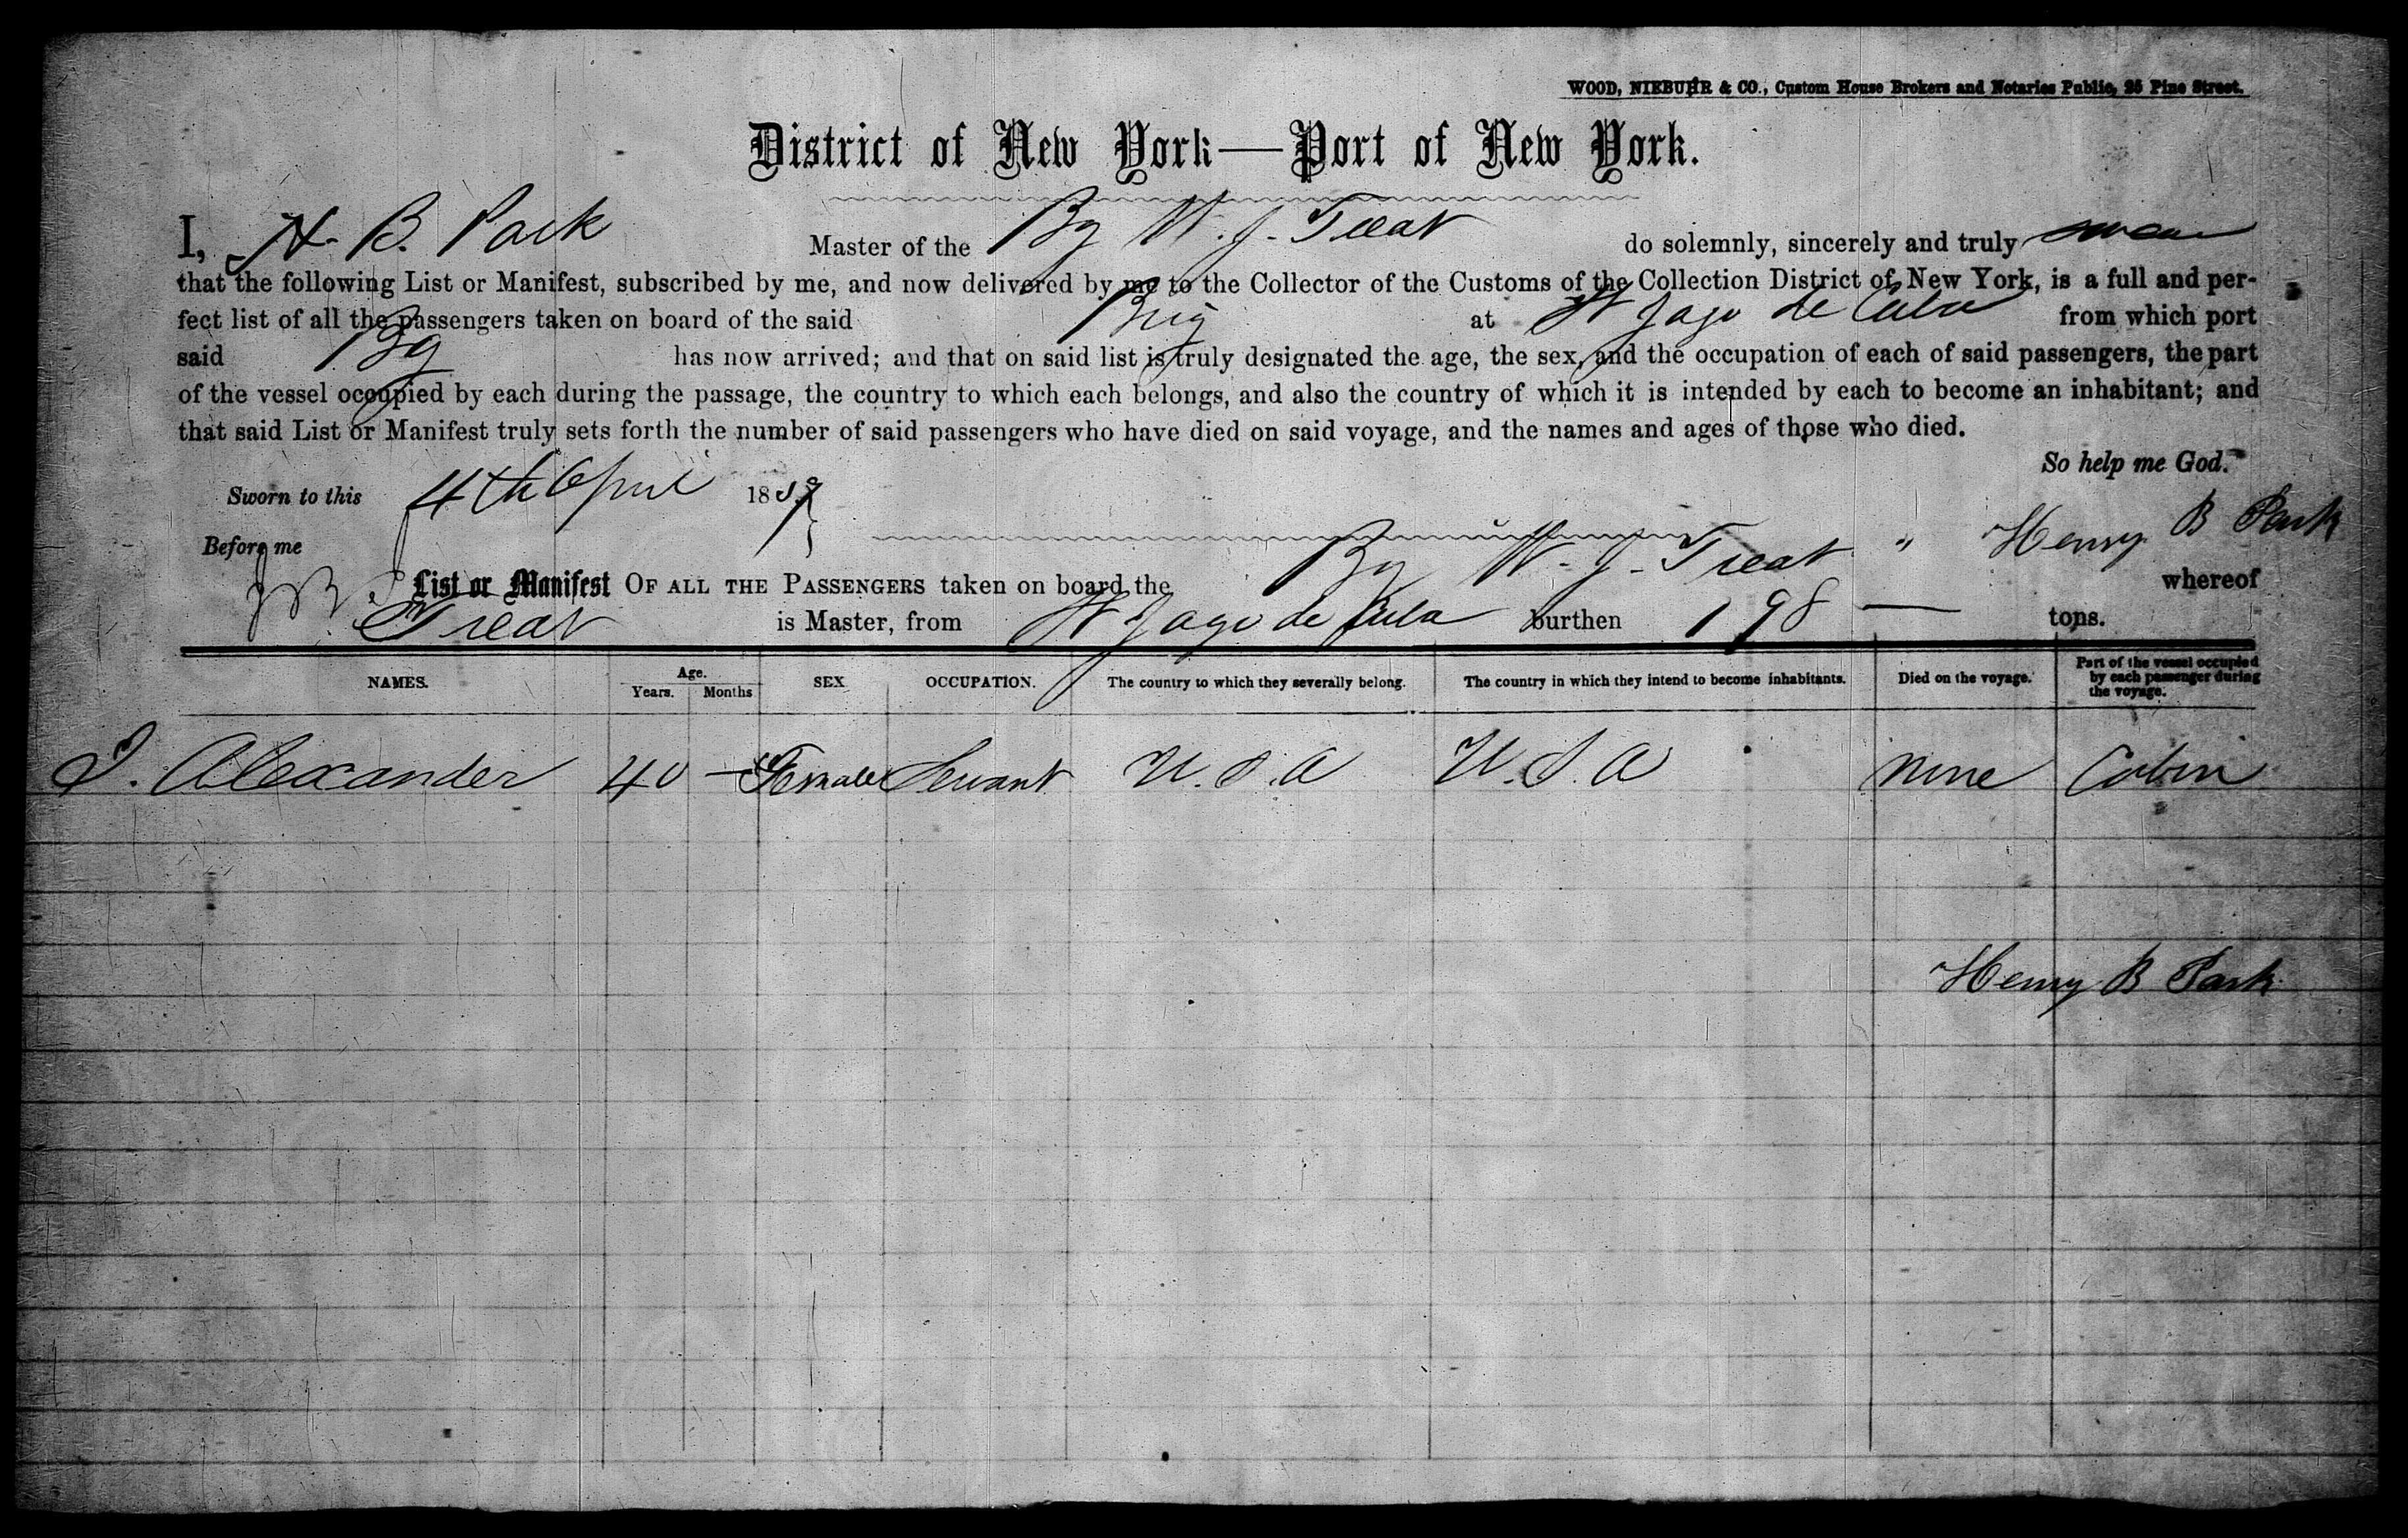 WOOD, NIEBUHR & CO., Custom House Brokers and Notaries Public, 25 Pine Street.
District of New York—Port of New York.
I, H. B. Park Master of the Bg W. J. Treat do solemnly, sincerely and truly swear
that the following List or Manifest, subscribed by me, and now delivered by me to the Collector of the Customs of the Collection District of New York, is a full and per-
fect list of all the passengers taken on board of the said Brig at St Jago de Cuba from which port
said Bg has now arrived; and that on said list is truly designated the age, the sex, and the occupation of each of said passengers, the part
of the vessel occupied by each during the passage, the country to which each belongs, and also the country of which it is intended by each to become an inhabitant; and
that said List or Manifest truly sets forth the number of said passengers who have died on said voyage, and the names and ages of those who died.
So help me God.
Sworn to this 4th April 18
Before me Henry B Park
List or Manifest OF ALL THE PASSENGERS taken on board the Bg W. J. Treat " whereof
Treat is Master, from St Jago de Cuba burthen 198 — tons.
NAMES. Age. Years. Months SEX OCCUPATION. The country to which they severally belong. The country in which they intend to become inhabitants. Died on the voyage. Part of the vessel occupied by each passenger during the voyage.
Alexander 40 — Female Servant U.S.A U.S.A None Cabin
Henry B Park